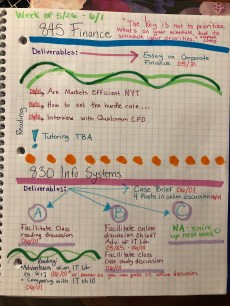 Week of 5/26 - 6/1
"The key is not to prioritize
what's on your schedule, but to
schedule your priorities."
845 Finance
Deliverables:
Essay on Corporate
Finance 05/31
Reading
Are Markets Efficient NYT
How to set the hurdle rate...
Interview with Qualcomm CFO
! Tutoring TBA
830 Info Systems
Deliverables:
Case Brief 06/01
4 Posts in online discussion
A
B
C
Facilitate class
reading discussion
06/01
Facilitate online
discussion
Adv of IT
05/25
Facilitate class
case study discussion
06/01
NA: You're
up next week
Reading
"Adventures" of an IT Ldr
• Comparing with IT ch 10
06/01
as you can post in online discussion